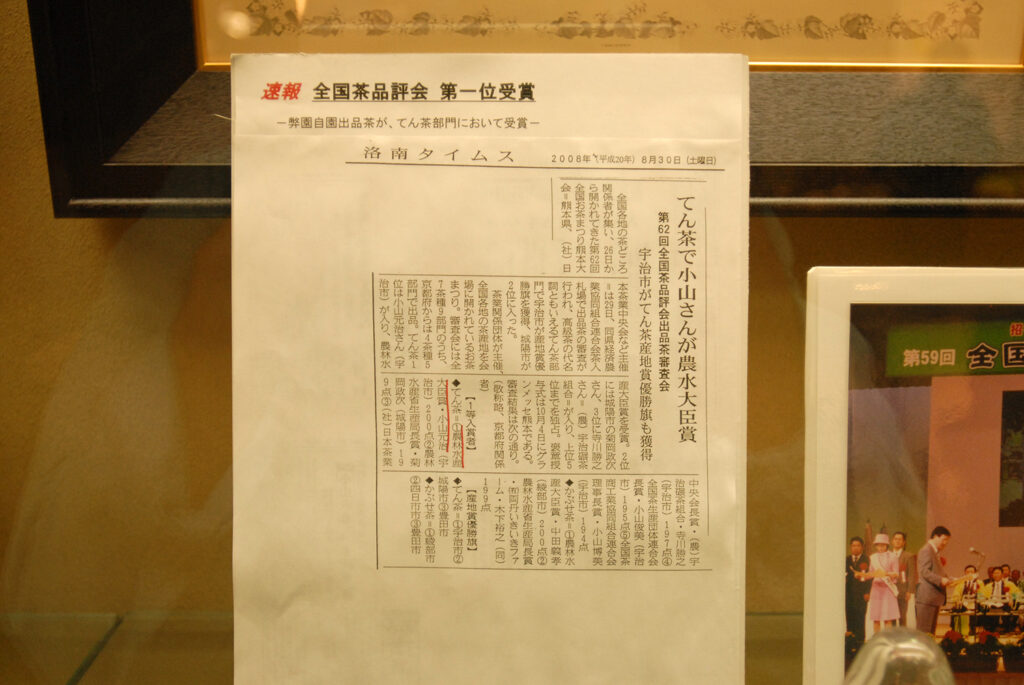 速報 全国茶品評会 第一位受賞
－弊園自園出品茶が、てん茶部門において受賞－
洛南タイムス 2008年(平成20年)8月30日(土曜日)
てん茶で小山さんが農水大臣賞
第62回全国茶品評会出品茶審査会
宇治市がてん茶産地賞優勝旗も獲得
全国各地の茶どころ
関係者が集い、26日か
ら開かれてきた第62回
全国お茶まつり熊本大
会＝熊本県、(社)日
本茶業中央会など主催
＝は29日、同県経済農
業協同組合連合会茶入
札場で出品茶の審査が
行われ、高級茶の代名
詞ともいえるてん茶部
門で宇治市が産地賞優
勝旗を獲得、城陽市が
2位に入った。
茶業関係団体が主催、
全国各地の茶産地を会
場に開かれているお茶
まつり。審査会には全
7茶種9部門のうち、
京都府からは4茶種5
部門で出品。てん茶1
位は小山元治さん(宇
治市)が入り、農林水
産大臣賞を受賞。2位
には城陽市の菊岡政次
さん、3位に寺川勝之
さん＝(農)宇治碾茶
組合＝が入り、上位5
位までを独占。褒章授
与式は10月4日にグラ
ンメッセ熊本である。
審査結果は次の通り。
(敬称略、京都府関係
者)
【1等入賞者】
◆てん茶＝①農林水産
大臣賞・小山元治(宇
治市)200点②農林
水産省生産局長賞・菊
岡政次(城陽市)19
9点③(社)日本茶業
中央会長賞・(農)宇
治碾茶組合・寺川勝之
(宇治市)197点④
全国茶生産団体連合会
長賞・小山俊美(宇治
市)195点⑤全国茶
商工業協同組合連合会
理事長賞・小山博美
(宇治市)194点
◆かぶせ茶＝①農林水
産大臣賞・中田義孝
(綾部市)200点②
農林水産省生産局長賞
・㈲両丹いきいきファ
ーム・木下裕之(同)
199点
【産地賞優勝旗】
◆てん茶＝①宇治市②
城陽市③豊田市
◆かぶせ茶＝①綾部市
②四日市市③豊田市
招
第59回 全国